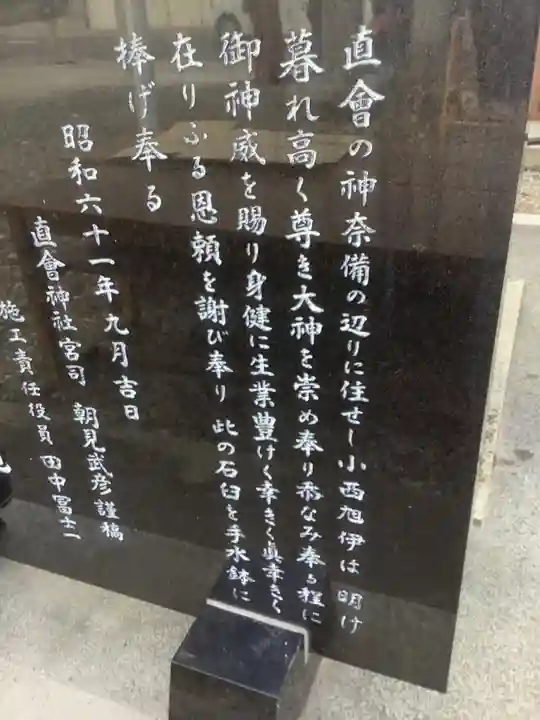 直會の神奈備の辺りに住せし小西旭伊は 明け
暮れ高く尊き大神を崇め奉り乘なみ奉る程に
御神威を賜り身健に生業豊けく幸きく眞幸きく
在りふる恩頼を謝び奉り 此の石臼を手水鉢に
捧げ奉る
昭和六十一年九月吉日
直會神社宮司 朝見武彦謹稿
施工責任役員 田中冨士一